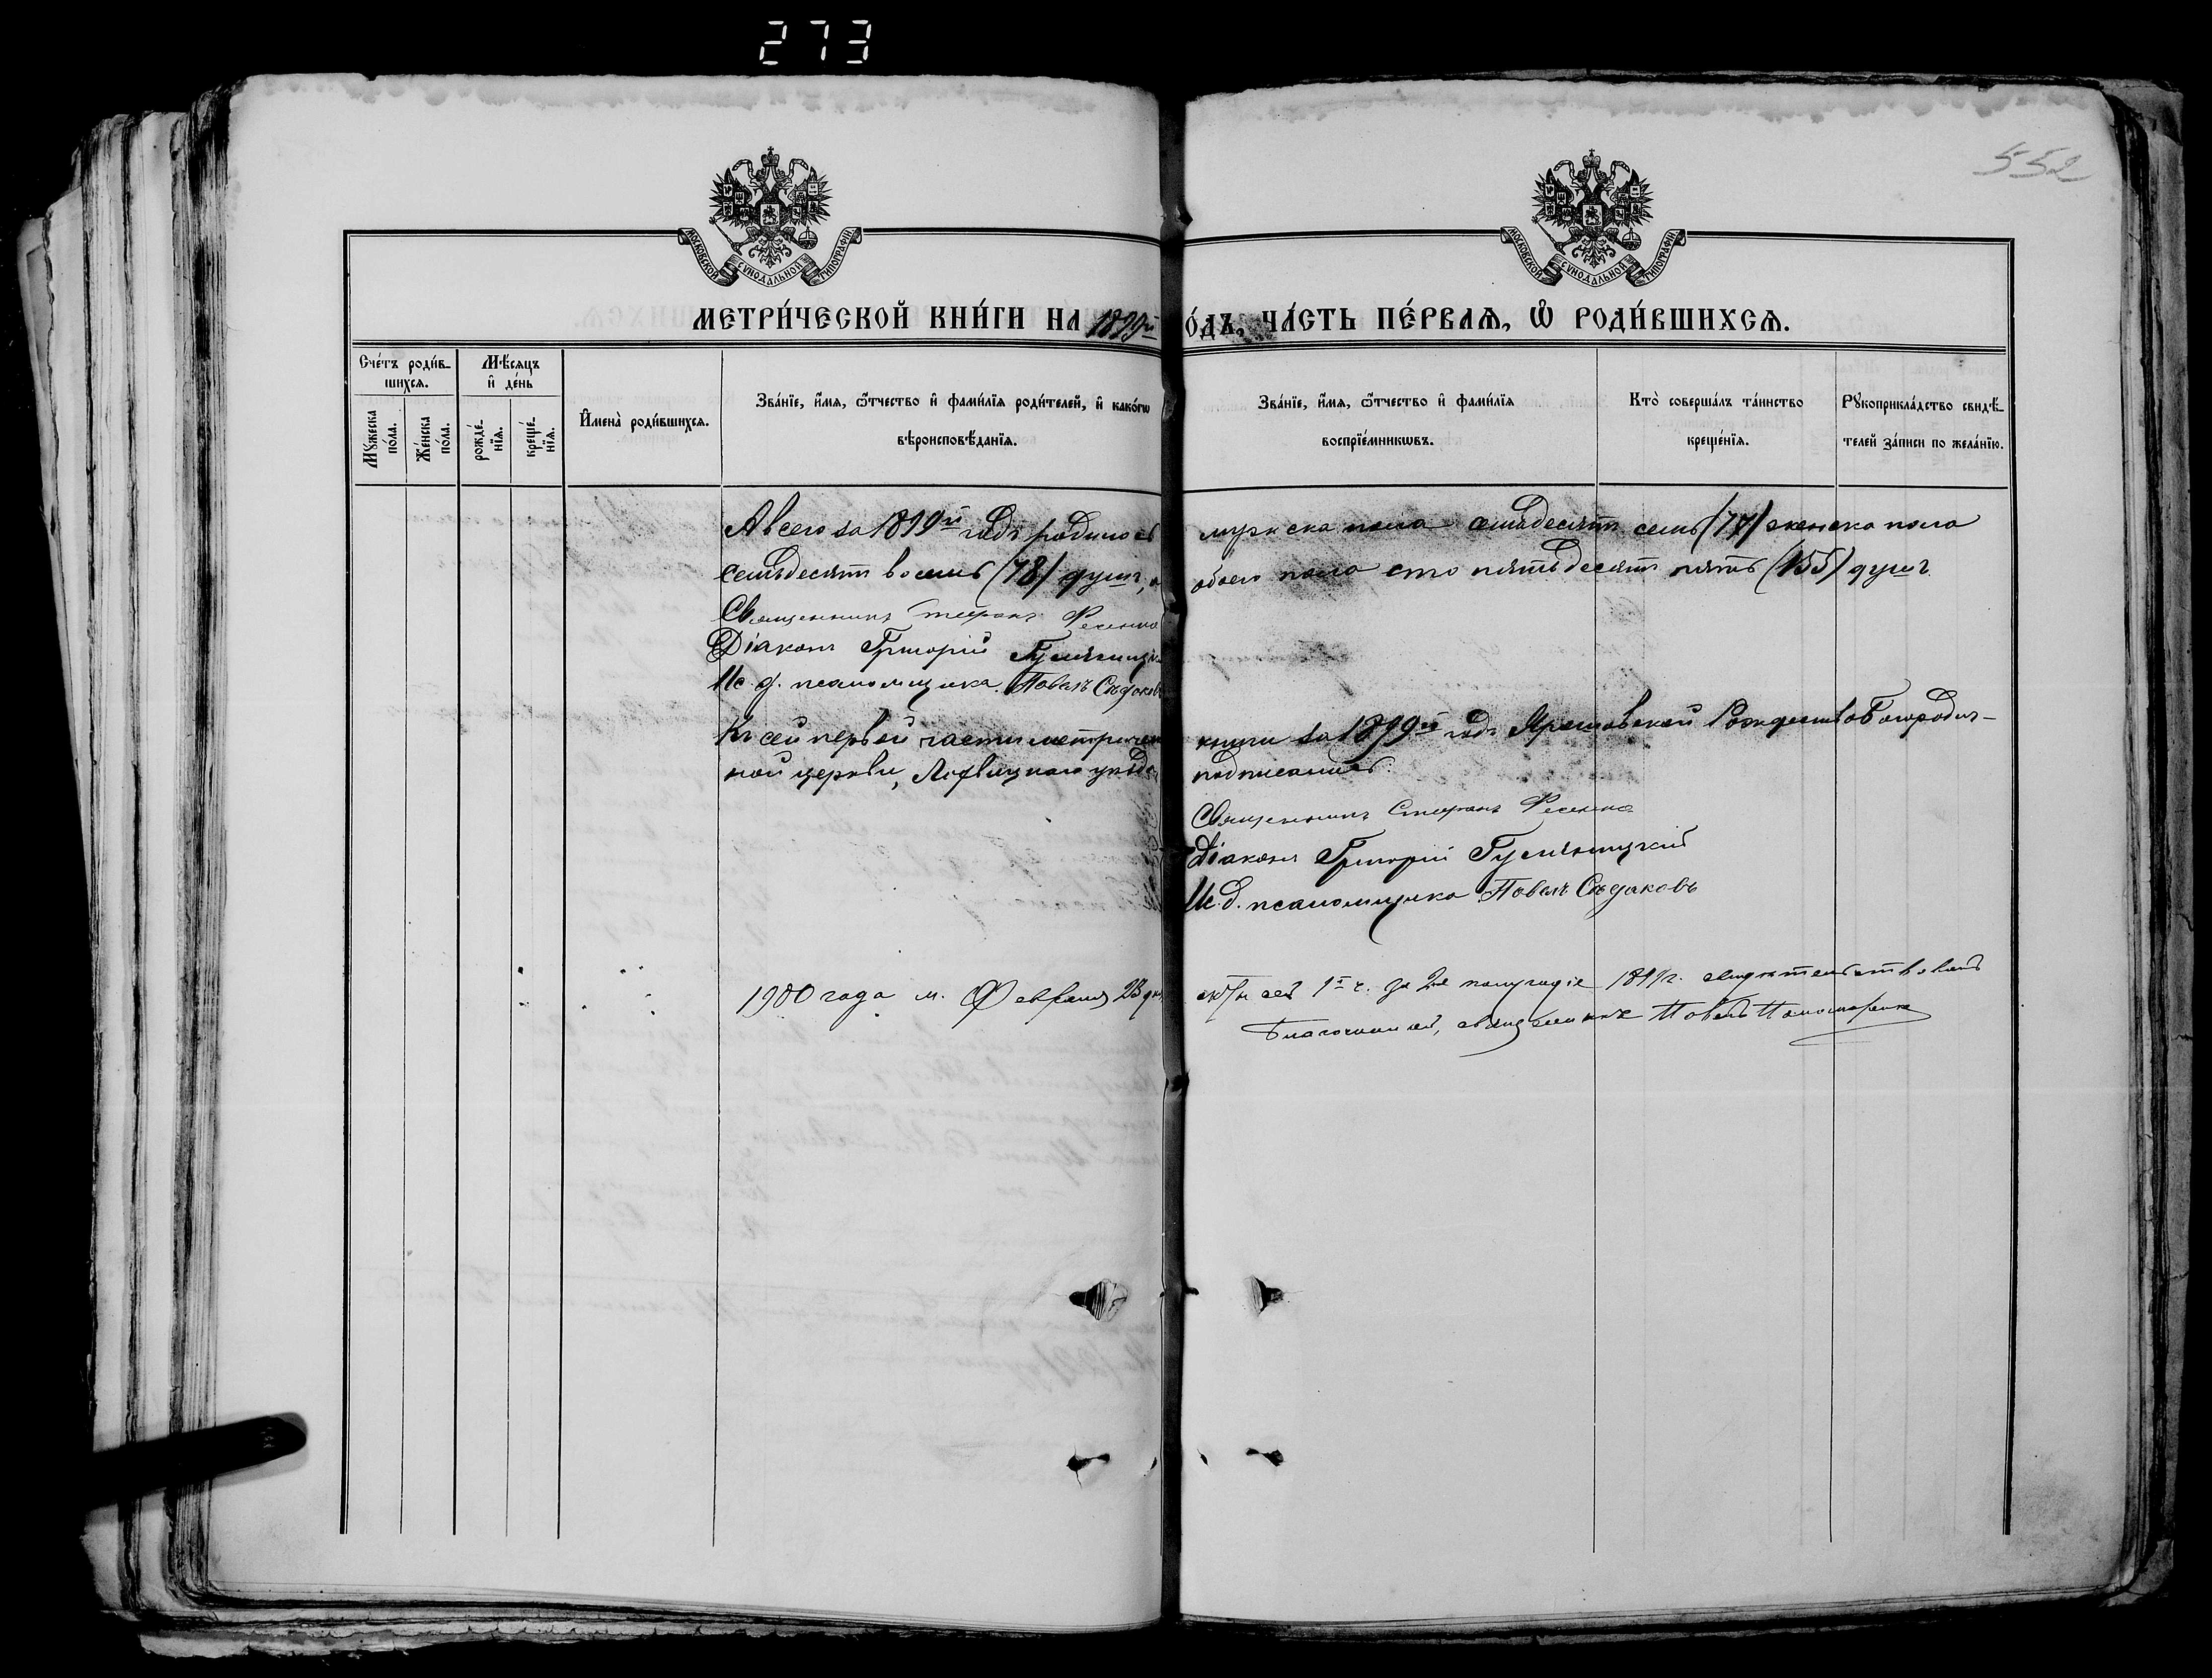 273
552
МОСКОВСКОЙ СѴНОДАЛЬНОЙ ТИПОГРАФІИ
МОСКОВСКОЙ СѴНОДАЛЬНОЙ ТИПОГРАФІИ
МЕТРИ́ЧЕСКОЙ КНИ́ГИ НА 1899й О́ДЪ, ЧА́СТЬ ПЕ́РВАѦ, Ѽ РОДИ́ВШИХСѦ.
Сче́тъ роди́в-
шихсѧ.
Мꙋжеска по́ла.
Же́нска по́ла.
Мѣ́сяцъ
и҆ де́нь
рожде́-
нїѧ.
креще́-
нїѧ.
И҆мена̀ роди́вшихсѧ.
Зва́нїе, и҆́мѧ, ѻ҆́тчество и҆ фами́лїѧ роди́телей, и҆ како́гѡ
вѣроисповѣ́данїѧ.
Зва́нїе, и҆́мѧ, ѻ҆́тчество и҆ фами́лїѧ
воспрїе́мникѡвъ.
Кто̀ соверша́лъ та́инство
креще́нїѧ.
Рꙋкоприкла́дство свидѣ́-
телей за́писи по жела́нїю.
А всего за 1899й годъ родилось мужска пола семьдесятъ семь (77) женска пола
семьдесятъ восемь (78) душъ, а обоего пола сто пятьдесятъ пять (155) душъ.
Священникъ Стефанъ Фесенко
Діаконъ Григорій
И. д. псаломщика Павелъ Сѣдаковъ
Къ сей первой части метричес книги за 1899й годъ Рождество Богородич-
ной церкви, Лохвицкаго уѣзда подписались:
Священникъ Стефанъ Фесенко
Діаконъ Григорій
И. д. псаломщика Павелъ Сѣдаковъ
1900 года м. Февраля 23 дня сей 1й ч. за 2е полугодіе 1899 г. свидѣтельствовалъ
Благочинный, священникъ Павелъ Пономаренко